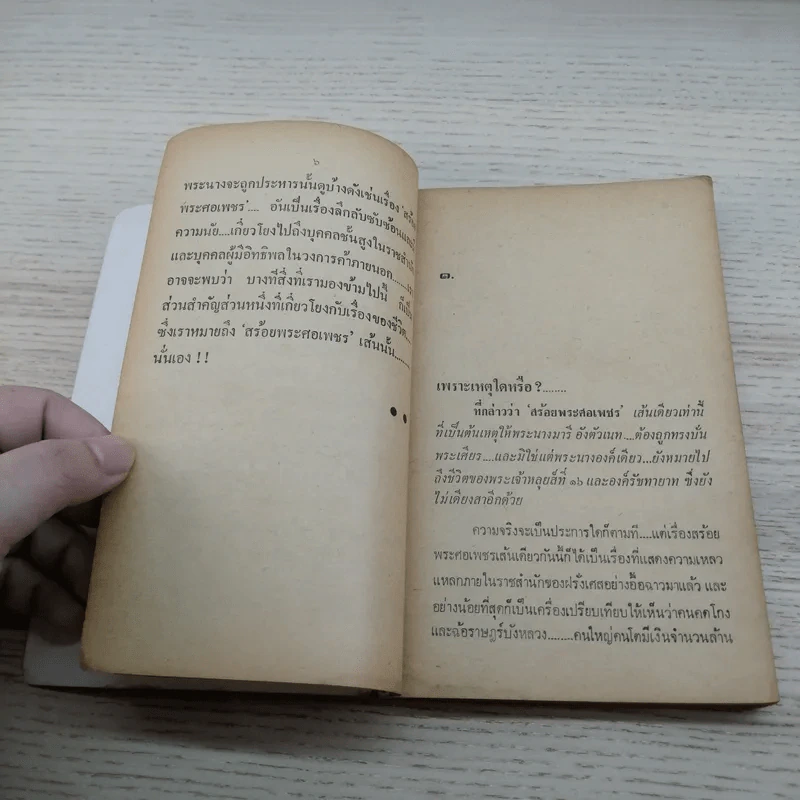 ๖
พระนางจะถูกประหารนั้นดูบ้างดังเช่นเรื่อง 'สร้อย
พระศอเพชร'.... อันเป็นเรื่องลึกลับซับซ้อน
ความนัย....เกี่ยวโยงไปถึงบุคคลชั้นสูงในราชสำนัก
และบุคคลผู้มีอิทธิพลในวงการค้าภายนอก........
อาจจะพบว่า บางทีสิ่งที่เรามองข้ามไปนี้ ก็เป็น
ส่วนสำคัญส่วนหนึ่งที่เกี่ยวโยงกับเรื่องของชีวิต....
ซึ่งเราหมายถึง 'สร้อยพระศอเพชร' เส้นนั้น........
นั่นเอง !!
๑.
เพราะเหตุใดหรือ ?........
ที่กล่าวว่า 'สร้อยพระศอเพชร' เส้นเดียวเท่านี้
ที่เป็นต้นเหตุให้พระนางมารี อังตัวเนท....ต้องถูกทรงบั่น
พระเศียร....และมิใช่แต่พระนางองค์เดียว...ยังหมายไป
ถึงชีวิตของพระเจ้าหลุยส์ที่ ๑๖ และองค์รัชทายาท ซึ่งยัง
ไม่เดียงสาอีกด้วย
ความจริงจะเป็นประการใดก็ตามที....แต่เรื่องสร้อย
พระศอเพชรเส้นเดียวกันนี้ก็ได้เป็นเรื่องที่แสดงความเหลว
แหลกภายในราชสำนักของฝรั่งเศสอย่างอื้อฉาวมาแล้ว และ
อย่างน้อยที่สุดก็เป็นเครื่องเปรียบเทียบให้เห็นว่าคนคดโกง
และฉ้อราษฎร์บังหลวง........คนใหญ่คนโตมีเงินจำนวนล้าน